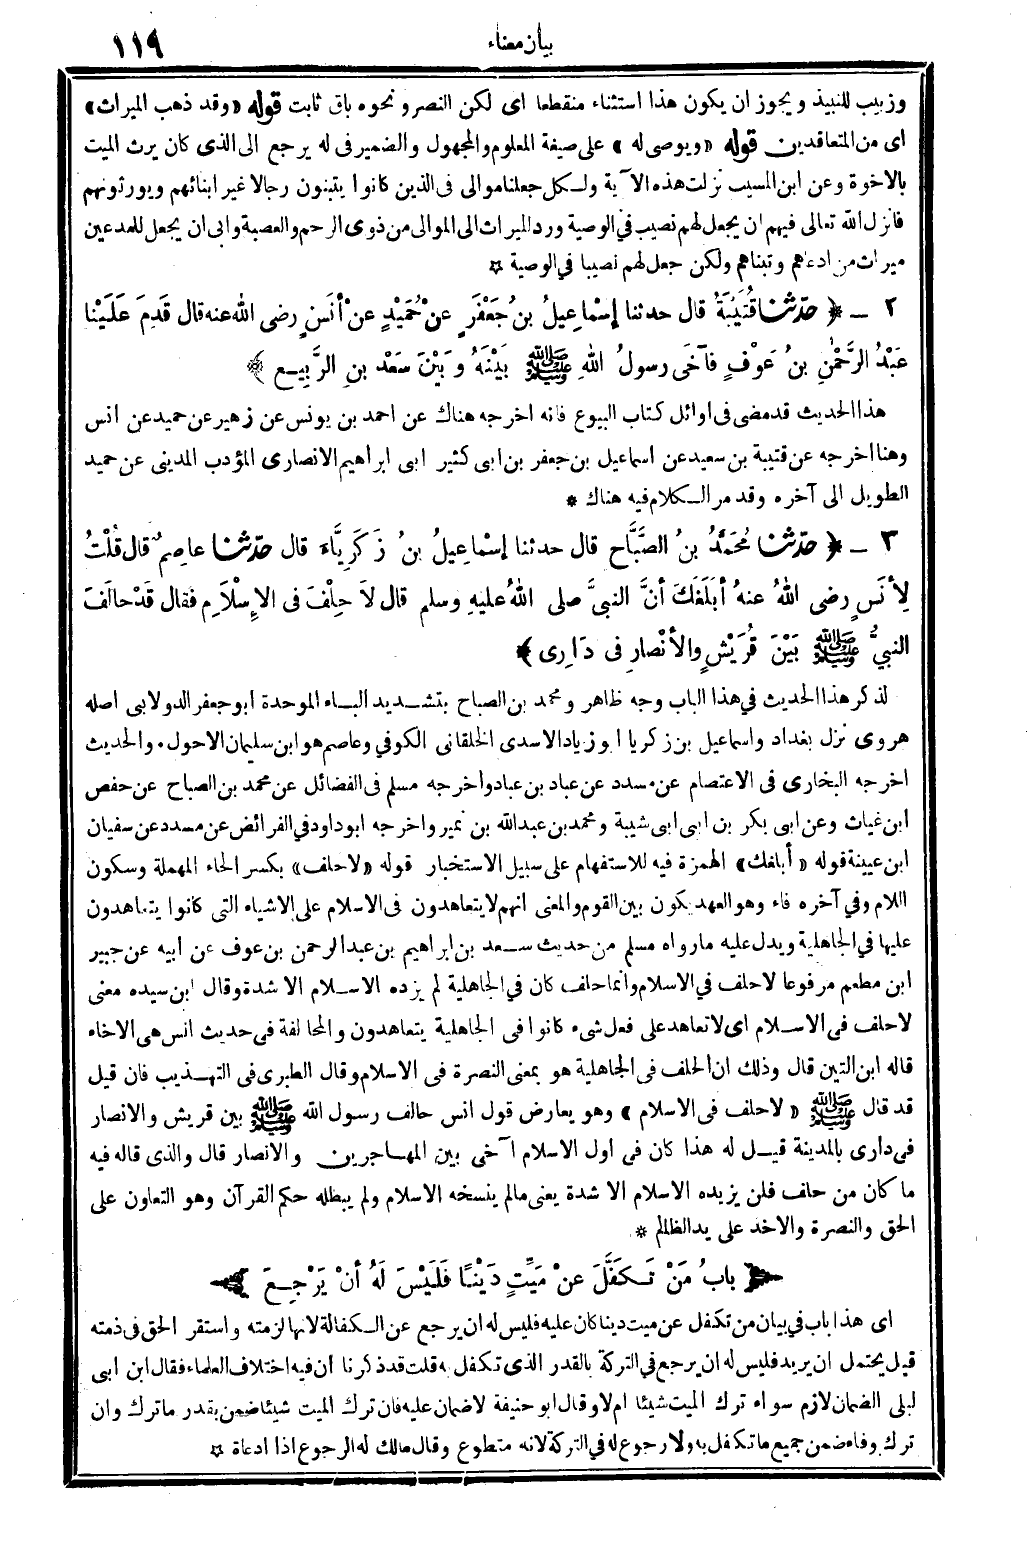 بيان معناه ١١٩
وزبيب للنبيذ ويجوز ان يكون هذا استثناء منقطعا اى لكن النصر ونحوه باق ثابت قوله «وقد ذهب الميراث»
اى من المتعاقدين قوله «ويوصى له» على صيغة المعلوم والمجهول والضمير فى له يرجع الى الذى كان يرث الميت
بالاخوة وعن ابن المسيب نزلت هذه الآية ولكل جعلنا موالى فى الذين كانوا يتبنون رجالا غير ابنائهم ويورثونهم
فانزل الله تعالى فيهم ان يجعل لهم نصيب فى الوصية ورد الميراث الى الموالى من ذوى الرحم والعصبة وابى ان يجعل للمدعين
ميراث من ادعاهم وتبناهم ولكن جعل لهم نصيبا فى الوصية *
٢ – ﴿ حدّثنا قُتَيْبَةُ قال حدثنا إسْماعِيلُ بنُ جَعْفَرٍ عنْ حُمَيْدٍ عنْ أنَسٍ رضى الله عنه قال قَدِمَ عَلَيْنا
عَبْدُ الرَّحْمٰنِ بنُ عَوْفٍ فآخَى رسولُ اللهِ ﷺ بَيْنَهُ وبَيْنَ سَعْدِ بنِ الرَّبِيعِ ﴾
هذا الحديث قد مضى فى اوائل كتاب البيوع فانه اخرجه هناك عن احمد بن يونس عن زهير عن حميد عن انس
وهنا اخرجه عن قتيبة بن سعيد عن اسماعيل بن جعفر بن ابى كثير ابى ابراهيم الانصارى المؤدب المدينى عن حميد
الطويل الى آخره وقد مر الكلام فيه هناك *
٣ – ﴿ حدّثنا مُحَمَّدُ بنُ الصَّبَّاحِ قال حدثنا إسْماعِيلُ بنُ زَكَرِيَّاءَ قال حدّثنا عاصِمٌ قال قُلْتُ
لِأنَسٍ رضى اللهُ عنهُ أبَلَغَكَ أنَّ النبيَّ صلى اللهُ عليهِ وسلم قال لاَ حِلْفَ فى الإِسْلاَمِ فقال قَدْ حالَفَ
النبيُّ ﷺ بَيْنَ قُرَيْشٍ والأنْصارِ فى دَارِى ﴾
لذكر هذا الحديث فى هذا الباب وجه ظاهر ومحمد بن الصباح بتشديد الباء الموحدة ابو جعفر الدولابى اصله
هروى نزل بغداد واسماعيل بن زكريا ابو زياد الاسدى الخلقانى الكوفى وعاصم هو ابن سليمان الاحول . والحديث
اخرجه البخارى فى الاعتصام عن مسدد عن عباد بن عباد واخرجه مسلم فى الفضائل عن محمد بن الصباح عن حفص
ابن غياث وعن ابى بكر بن ابى ابى شيبة ومحمد بن عبد الله بن نمير واخرجه ابو داود فى الفرائض عن مسدد عن سفيان
ابن عيينة قوله «أبلغك» الهمزة فيه للاستفهام على سبيل الاستخبار قوله «لا حلف» بكسر الحاء المهملة وسكون
اللام وفى آخره فاء وهو العهد يكون بين القوم والمعنى انهم لا يتعاهدون فى الاسلام على الاشياء التى كانوا يتعاهدون
عليها فى الجاهلية ويدل عليه ما رواه مسلم من حديث سعد بن ابراهيم بن عبد الرحمن بن عوف عن ابيه عن جبير
ابن مطعم مرفوعا لا حلف فى الاسلام وانما حلف كان فى الجاهلية لم يزده الاسلام الا شدة وقال ابن سيده معنى
لا حلف فى الاسلام اى لا تعاهد على فعل شىء كانوا فى الجاهلية يتعاهدون والمحالفة فى حديث انس هى الاخاء
قاله ابن التين قال وذلك ان الحلف فى الجاهلية هو بمعنى النصرة فى الاسلام وقال الطبرى فى التهذيب فان قيل
قد قال ﷺ «لا حلف فى الاسلام» وهو يعارض قول انس حالف رسول الله ﷺ بين قريش والانصار
فى دارى بالمدينة قيل له هذا كان فى اول الاسلام آخى بين المهاجرين والانصار قال والذى قاله فيه
ما كان من حلف فلن يزيده الاسلام الا شدة يعنى ما لم ينسخه الاسلام ولم يبطله حكم القرآن وهو التعاون على
الحق والنصرة والاخذ على يد الظالم *
﴿ بابُ مَنْ تَكَفَّلَ عنْ مَيِّتٍ دَيْنًا فَلَيْسَ لَهُ أنْ يَرْجِعَ ﴾
اى هذا باب فى بيان من تكفل عن ميت دينا كان عليه فليس له ان يرجع عن الكفالة لانها لزمته واستقر الحق فى ذمته
قيل يحتمل ان يريد فليس له ان يرجع فى التركة بالقدر الذى تكفل به قلت قد ذكرنا ان فيه اختلاف العلماء فقال ابن ابى
ليلى الضمان لازم سواء ترك الميت شيئا ام لا وقال ابو حنيفة لا ضمان عليه فان ترك الميت شيئا ضمن بقدر ما ترك وان
ترك وفاء ضمن جميع ما تكفل به ولا رجوع له فى التركة لانه متطوع وقال مالك له الرجوع اذا ادعاه *